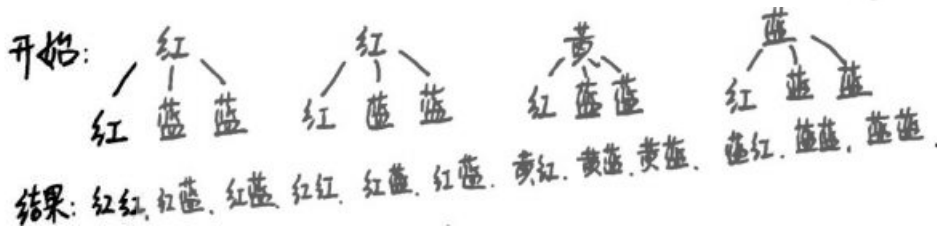 开始: 红 红 黄 蓝
红 蓝 蓝 红 蓝 蓝 红 蓝 蓝 红 蓝 蓝
结果: 红红, 红蓝, 红蓝, 红红, 红蓝, 红蓝, 黄红, 黄蓝, 黄蓝, 蓝红, 蓝蓝, 蓝蓝.